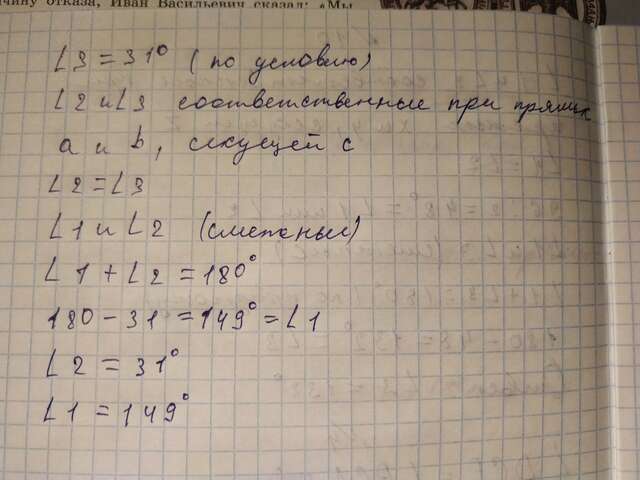 чину отказа, Иван Васильевич сказал: «Мы
∠3 = 31° (по условию)
∠2 и ∠3 соответственные при прямых
a и b, секущей c
∠2 = ∠3
∠1 и ∠2 (смежные)
∠1 + ∠2 = 180°
180 - 31 = 149° = ∠1
∠2 = 31°
∠1 = 149°